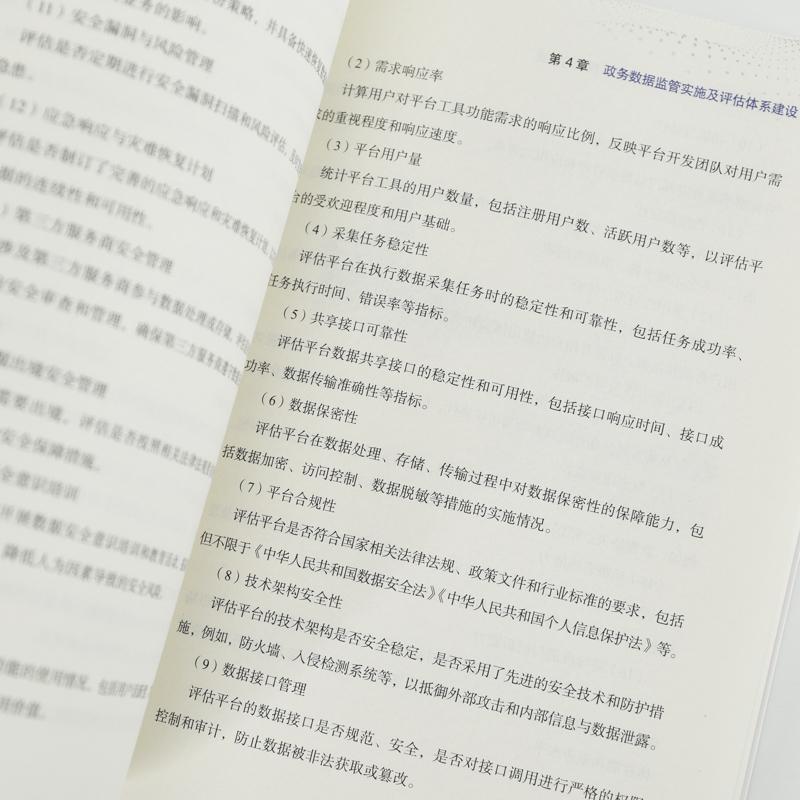 略，并具备快速恢复
业务的影响。
（11）安全漏洞与风险管理
评估是否定期进行安全漏洞扫描和风险评估，
隐患。
（12）应急响应与灾难恢复计划
评估是否制订了完善的应急响应和灾难恢复计划，
据的连续性和可用性。
）第三方服务商安全管理
涉及第三方服务商参与数据处理或存储，
的安全审查和管理，确保第三方服务商遵守
据出境安全管理
需要出境，评估是否按照相关法律法规
安全保障措施。
全意识培训
开展数据安全意识培训和教育活动，
降低人为因素导致的安全风险
功能的使用情况，包括用户活跃
用价值。
第4章 政务数据监管实施及评估体系建设
（2）需求响应率
计算用户对平台工具功能需求的响应比例，反映平台开发团队对用户需
求的重视程度和响应速度。
（3）平台用户量
统计平台工具的用户数量，包括注册用户数、活跃用户数等，以评估平
台的受欢迎程度和用户基础。
（4）采集任务稳定性
评估平台在执行数据采集任务时的稳定性和可靠性，包括任务成功率、
任务执行时间、错误率等指标。
（5）共享接口可靠性
评估平台数据共享接口的稳定性和可用性，包括接口响应时间、接口成
功率、数据传输准确性等指标。
（6）数据保密性
评估平台在数据处理、存储、传输过程中对数据保密性的保障能力，包
括数据加密、访问控制、数据脱敏等措施的实施情况。
（7）平台合规性
评估平台是否符合国家相关法律法规、政策文件和行业标准的要求，包括
但不限于《中华人民共和国数据安全法》《中华人民共和国个人信息保护法》等。
（8）技术架构安全性
评估平台的技术架构是否安全稳定，是否采用了先进的安全技术和防护措
施，例如，防火墙、入侵检测系统等，以抵御外部攻击和内部信息与数据泄露。
（9）数据接口管理
评估平台的数据接口是否规范、安全，是否对接口调用进行严格的权限
控制和审计，防止数据被非法获取或篡改。